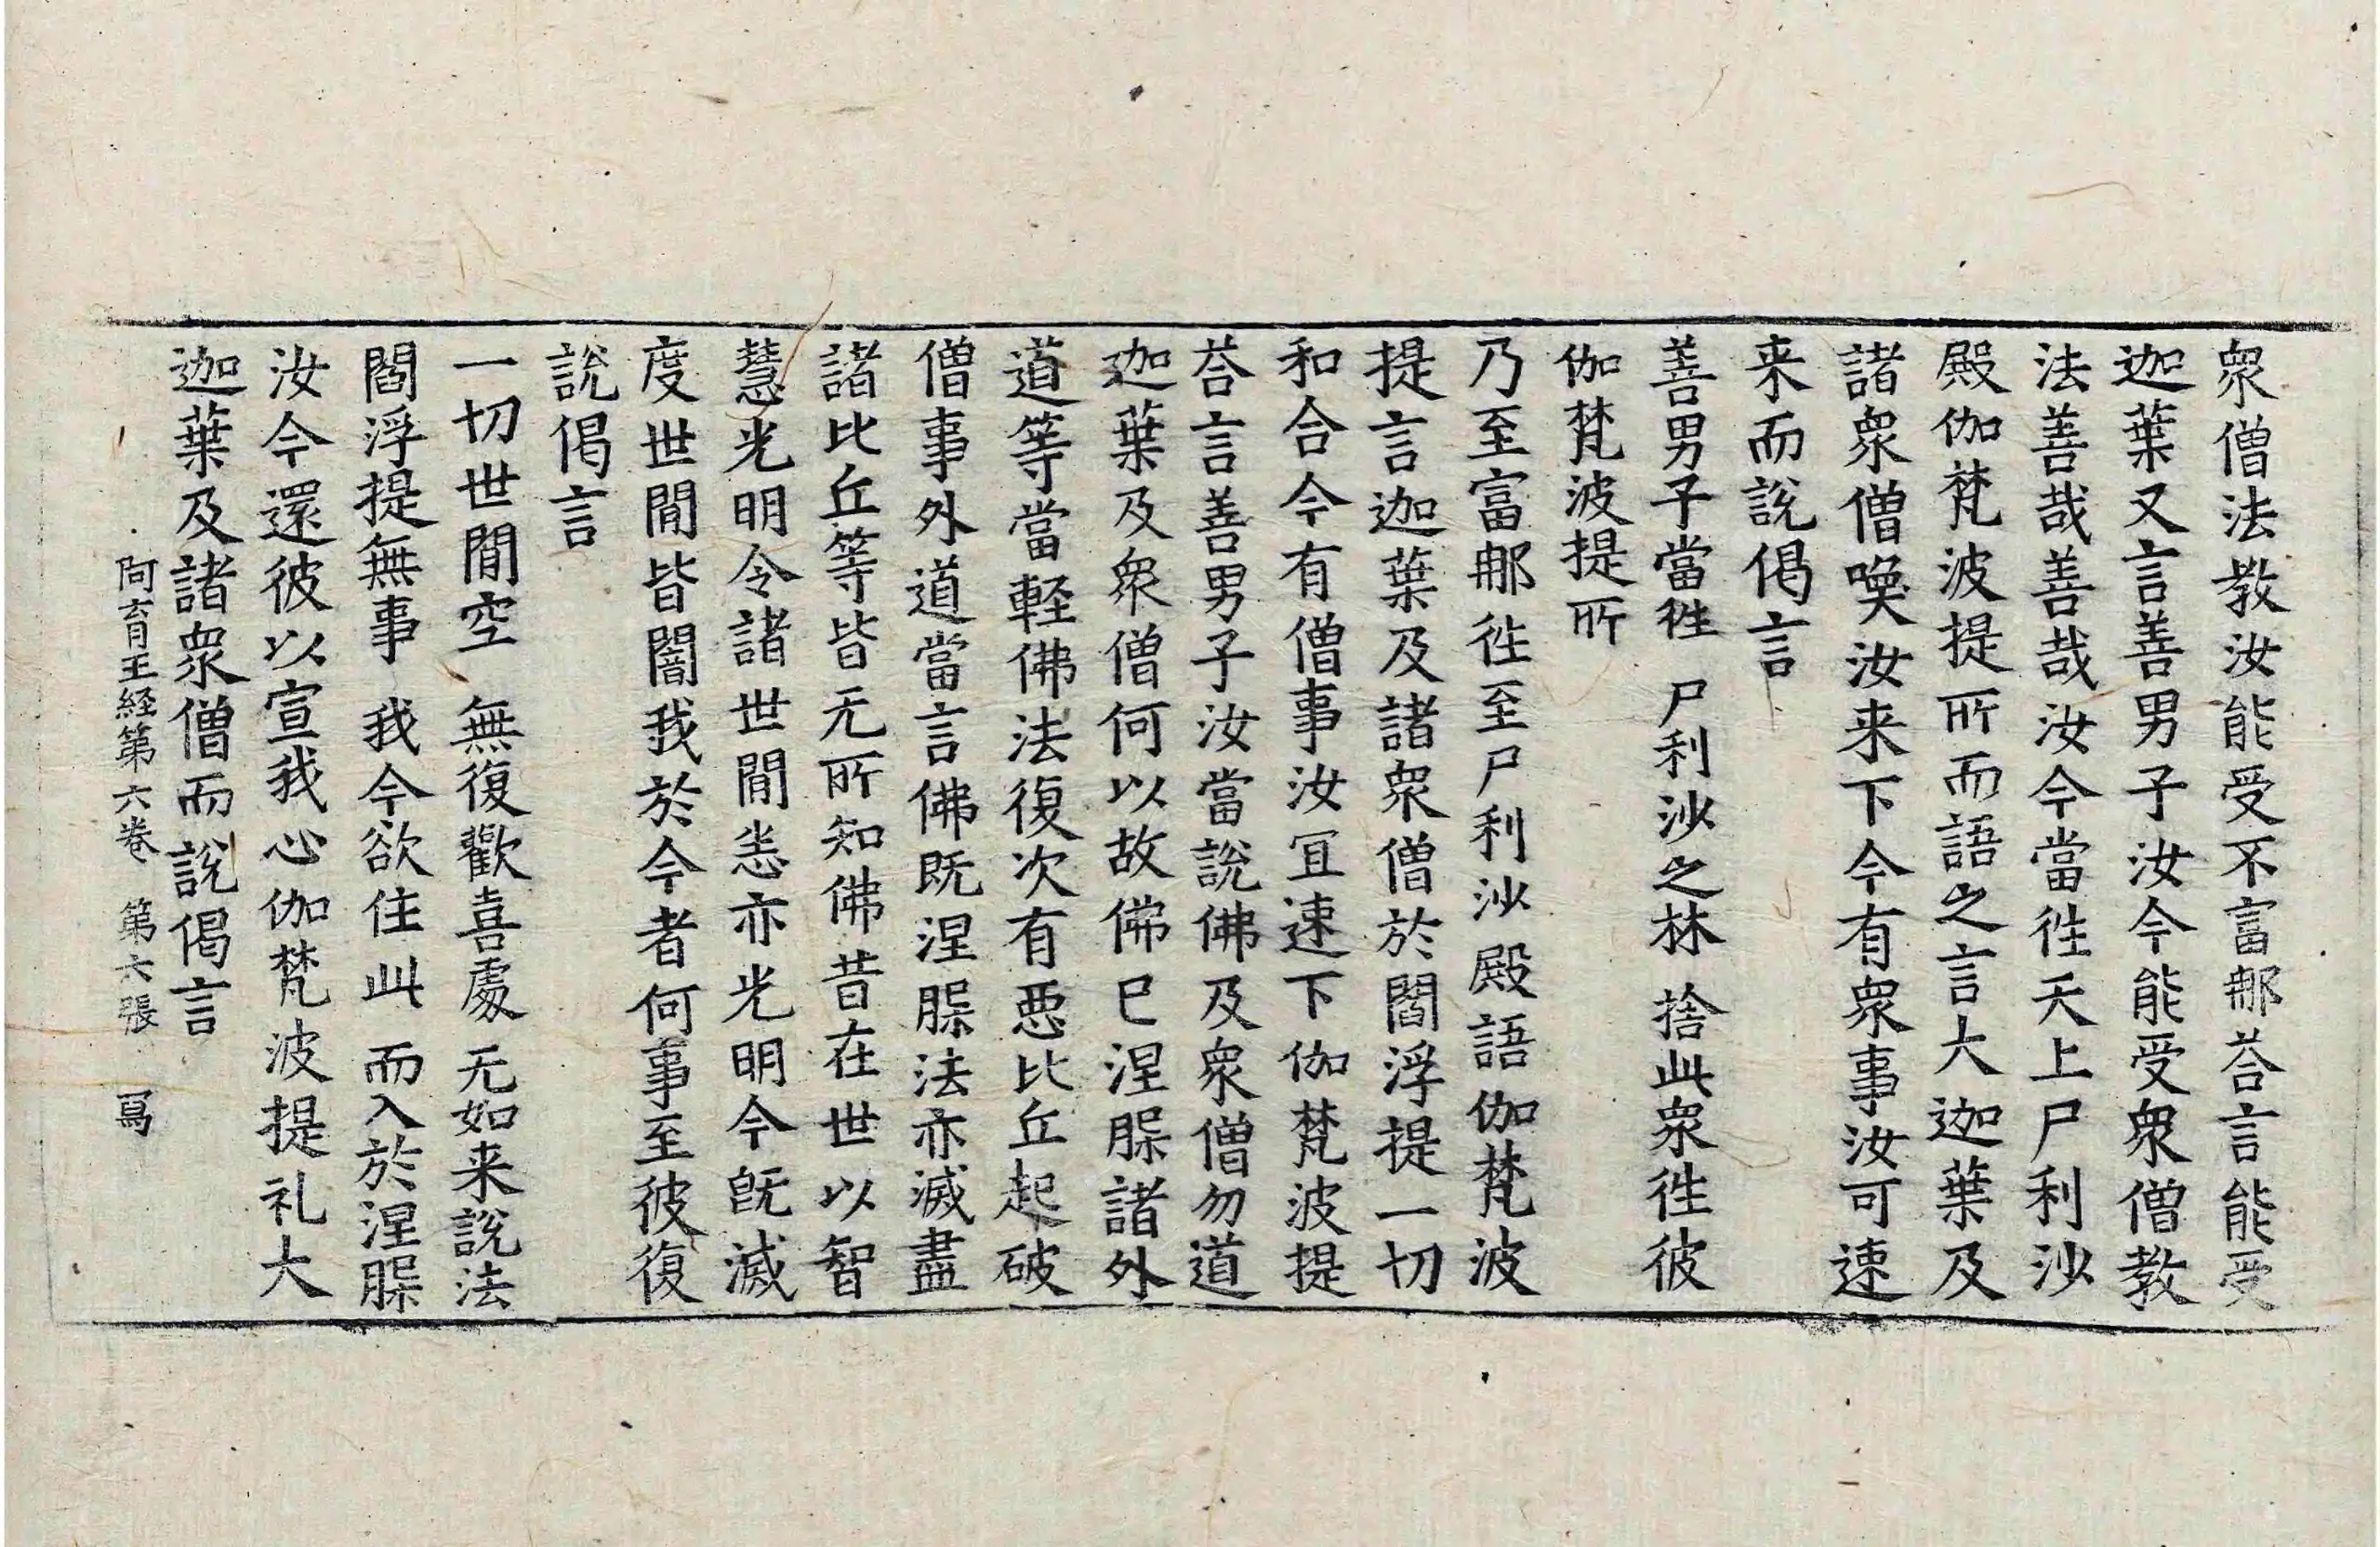 衆僧法教汝能受不富那荅言能受
迦葉又言善男子汝今能受衆僧教
法善哉善哉汝今當往天上尸利沙
殿伽梵波提所而語之言大迦葉及
諸衆僧喚汝来下今有衆事汝可速
来而說偈言
善男子當往　尸利沙之林　捨此衆往彼
伽梵波提所
乃至富那往至尸利沙殿語伽梵波
提言迦葉及諸衆僧於閻浮提一切
和合今有僧事汝冝速下伽梵波提
荅言善男子汝當說佛及衆僧勿道
迦葉及衆僧何以故佛已涅槃諸外
道等當軽佛法復次有悪比丘起破
僧事外道當言佛既涅槃法亦滅盡
諸比丘等皆无所知佛昔在世以智
慧光明令諸世間恙亦光明今既滅
度世間皆闇我於今者何事至彼復
說偈言
一切世間空　無復歡喜處　无如来說法
閻浮提無事　我今欲住此　而入於涅槃
汝今還彼以宣我心伽梵波提礼大
迦葉及諸衆僧而說偈言
阿育王経第六卷　第六張　寫